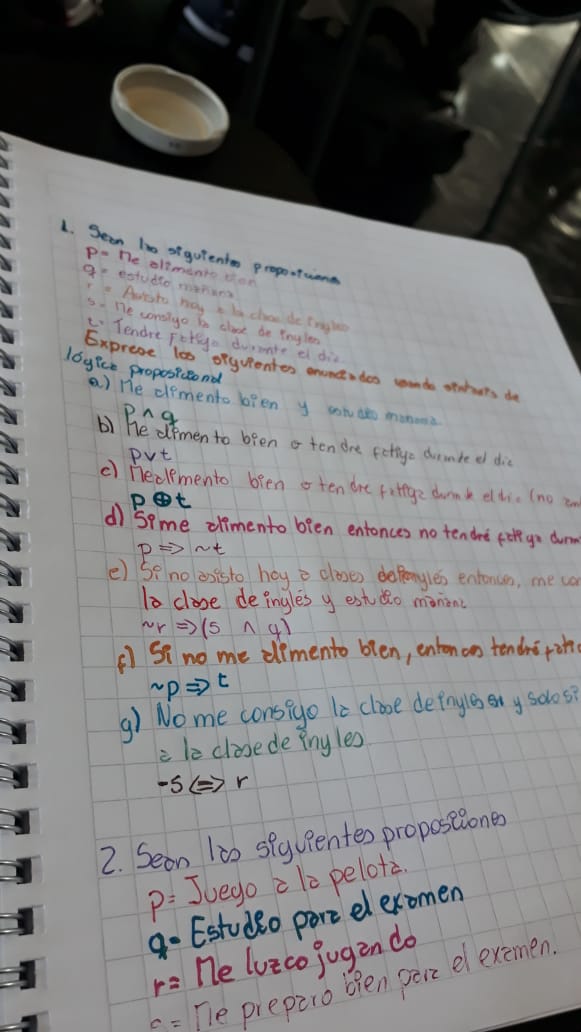 1. Sean las siguientes proposiciones
p= Me alimento bien
q= estudio mañana
r = Asisto hoy a la clase de Ingles
s= me consigo la clase de ingles
t= Tendre Fatiga durante el dia
Exprese los siguientes enunciados usando sintaxis de
lógica proposicional
a.) Me alimento bien y estudio mañana
p ∧ q
b) Me alimento bien o tendre fatiga durante el dia
p∨t
c) Me alimento bien o tendre fatiga durante el dia (no
p⊕t
d) Si me alimento bien entonces no tendré fatiga
p => ~t
e) Si no asisto hoy a clases de ingles entonces, me
la clase de inglés y estudio mañana
~r => (s ∧ q)
f) Si no me alimento bien, entonces tendré
~p => t
g) No me consigo la clase de ingles y solo si
a la clase de ingles
-s <=> r
2. Sean las siguientes proposiciones
p= Juego a la pelota.
q= Estudio para el examen
r= Me luzco jugando
s = me preparo bien para el examen.